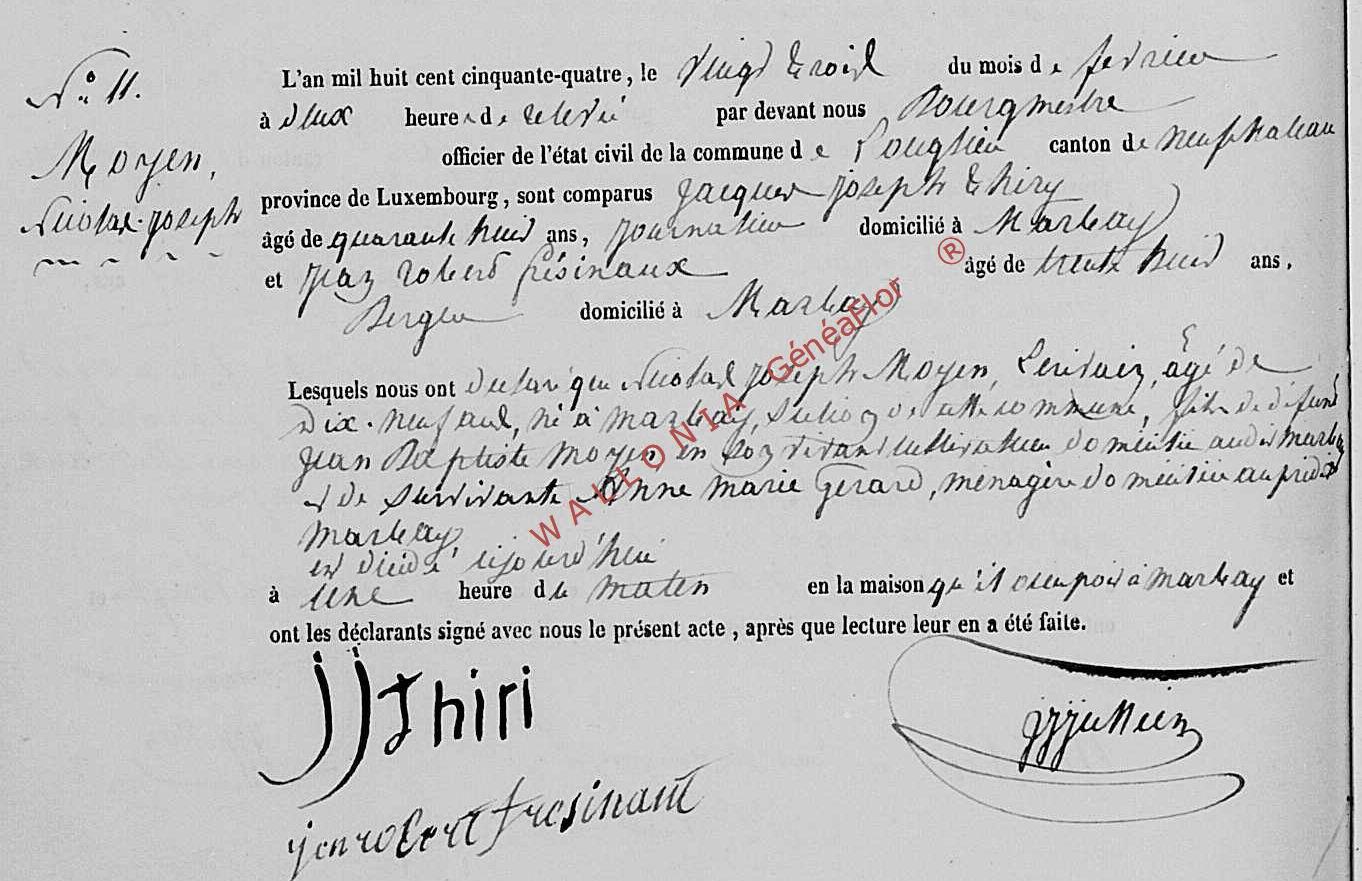 N° 11.
Moyen,
Nicolas-joseph
L'an mil huit cent cinquante-quatre, le vingt trois du mois de fevrier
à deux heures de relevé par devant nous Bourgmestre
officier de l'état civil de la commune de canton de neufchateau
province de Luxembourg, sont comparus jacques joseph thiry
âgé de quarante huit ans, journalier domicilié à Marbay
et jean robert frésinaux âgé de trente huit ans,
Berger domicilié à Marbay
Lesquels nous ont declaré que Nicolas joseph Moyen, âgé de
Dix-neuf ans, né à marbay, section de cette commune, fils de défunt
jean Baptiste moyen en son vivant cultivateur domicilié audit marbay
et de survivante Anne marie Gerard, ménagère domiciliée au prédit
marbay
est décédé cejourd'hui
à une heure du matin en la maison qu'il occupoit à marbay et
ont les déclarants signé avec nous le présent acte, après que lecture leur en a été faite.
JJ thiri
jean robert fresinaut
WALLONIA GénéaFlor ®